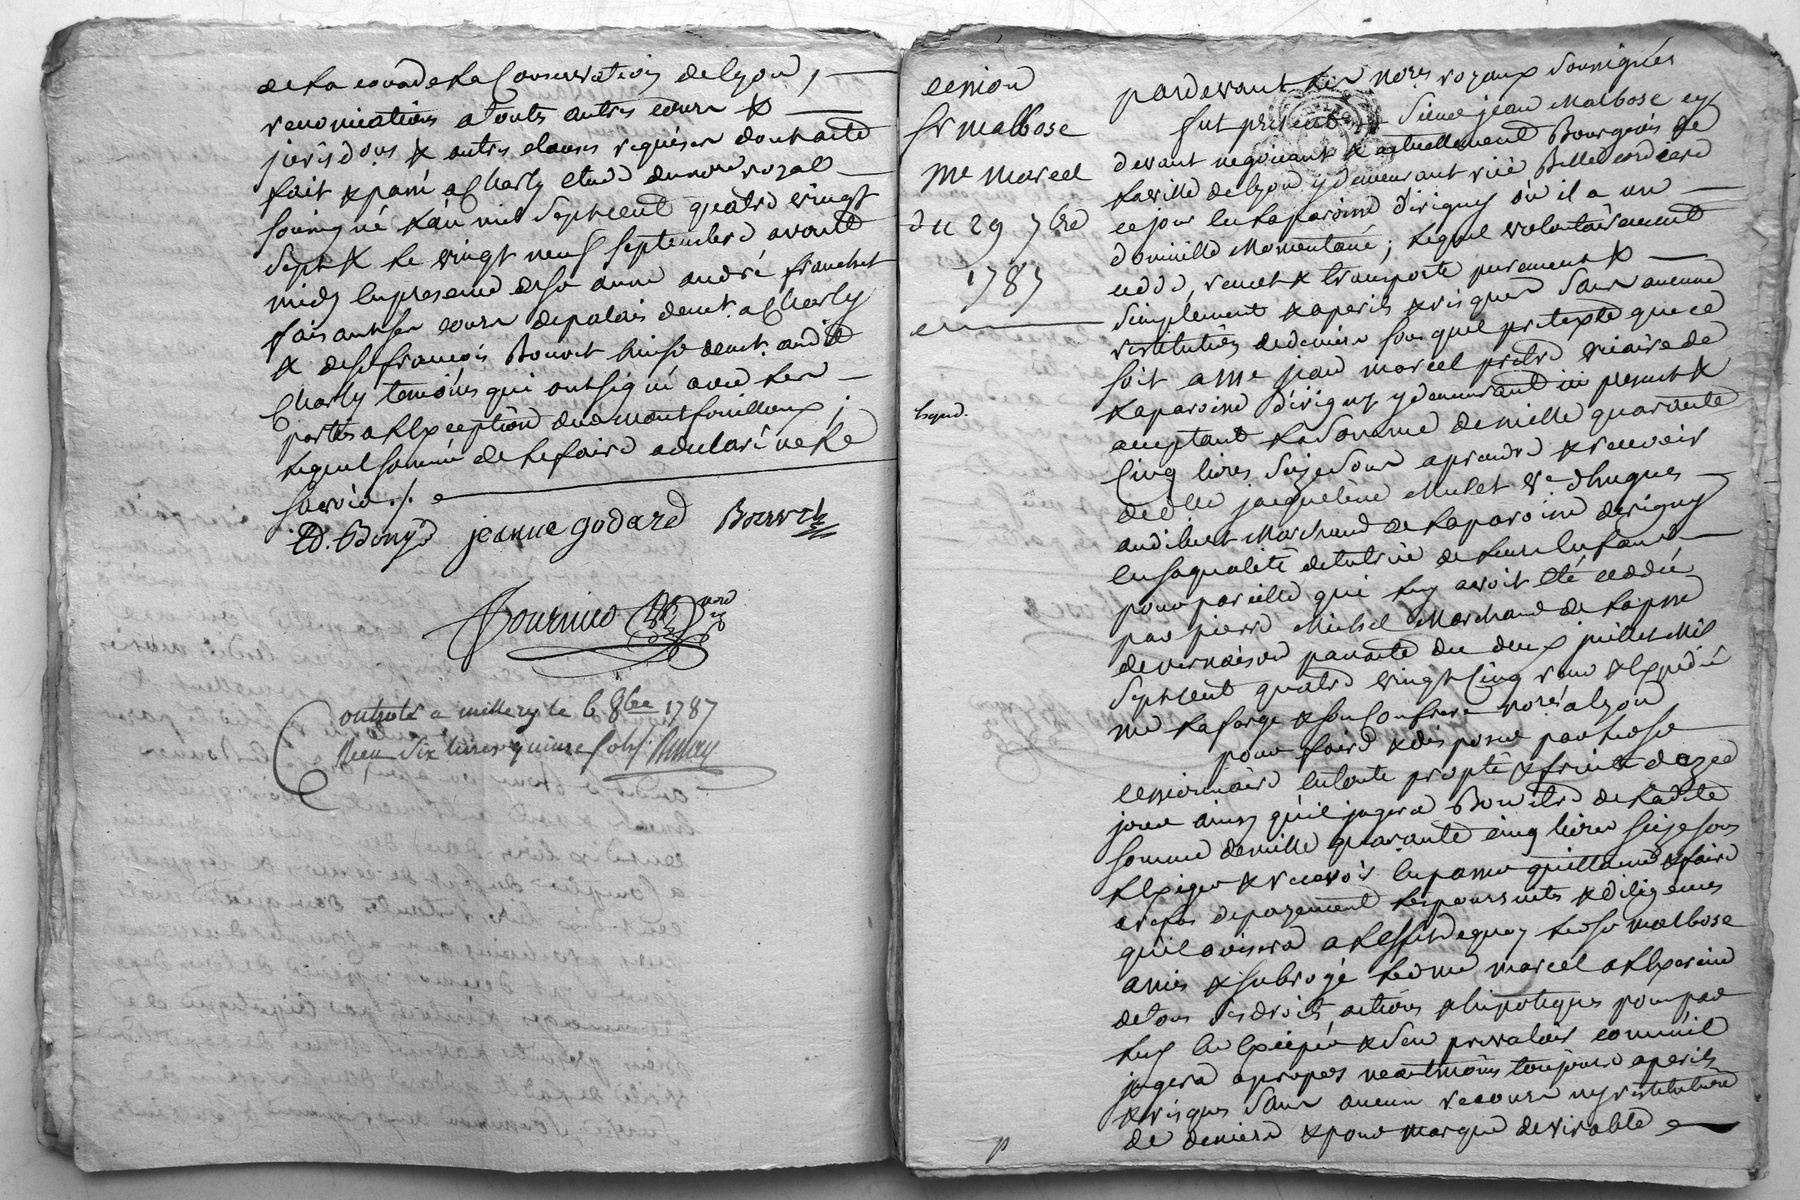 de la cour de la Conservation de lyon,
renonciations a touts autres cours &
jurisdons & autres clauses requises dont acte
fait & passé a Charly etude du nore royal
soussigné l'an mil sept cent quatre vingt
sept & le vingt neuf septembre avant
midy en presence de sr anne andré franchet
faisant ses cours de palais demt. a Charly
& de sr françois Bouvet demt. audit
Charly temoins qui ont signé avec les
parties a l'Exception dud montfouilloux;
lequel sommé de le faire a declaré ne le
savoir ./.
jeanne godard Bouvet
Fournier
Controlé a millery le 6 8bre 1787
Reçu six livres quinze sols
cession
sr malbose
Me marcel
du 29 7bre
1787
Expéd.
pardevant les nores royaux soussignés
fut present sieur jean Malbose cy
devant negociant & actuellement Bourgeois de
la ville de lyon y demeurant rüe Bellecordiere
ce jour en la paroisse d'irigny où il a un
domicille Momentané; lequel volontairement
cede, remet & transporte purement &
simplement & a perils & risques sans aucune
restitution de deniers sous quel pretexte que ce
soit a Me jean marcel prètre vicaire de
la paroisse d'irigny y demeurant ici present &
acceptant la somme de mille quarante
Cinq livres seize sous a prendre & recevoir
de dlle jacqueline Mulet ve d'hugues
audibert Marchand de la paroisse d'irigny
en sa qualité de tutrice de leurs Enfans
pour pareille qui luy avoit été cedée
par pierre Michel Marchand de la psse
de vernaison par acte du deux juillet Mil
sept cent quatre vingt Cinq reçu & Expedié
Me Lafarge & son Confrere nores a lyon
pour faire & disposer par le sr
cessionnaire en toute propté & fruits dez ce
jour ainsy qu'il jugera Bon etre de ladite
somme de mille quarante cinq livres seize sous
l'exiger & recevoir en passer quittance & faire
a refus de payement les poursuites & diligences
qu'il avisera a l'effet de quoy led sr malbose
a mis & subrogé led me marcel a l'Exercice
de tous ses droits actions & hipotèques pour par
luy En Exciper & s'en prevaloir comm'il
jugera a propos neantmoins toujours a perils
& risques sans aucun recours ny restitution
de deniers & pour marque de virable